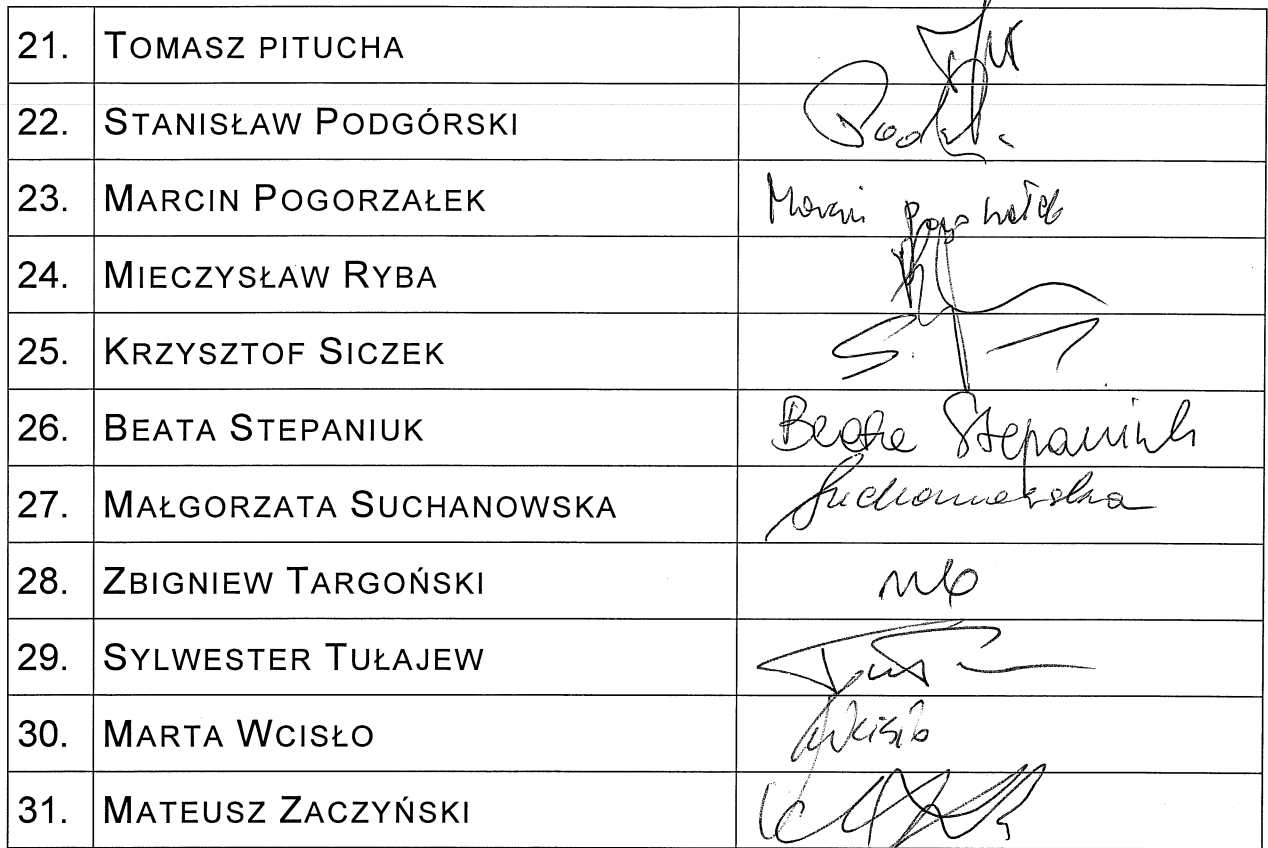 21. TOMASZ PITUCHA
22. STANISŁAW PODGÓRSKI
23. MARCIN POGORZAŁEK Marcin Pogorzałek
24. MIECZYSŁAW RYBA
25. KRZYSZTOF SICZEK
26. BEATA STEPANIUK Beata Stepaniuk
27. MAŁGORZATA SUCHANOWSKA Suchanowska
28. ZBIGNIEW TARGOŃSKI
29. SYLWESTER TUŁAJEW
30. MARTA WCISŁO Wcisło
31. MATEUSZ ZACZYŃSKI